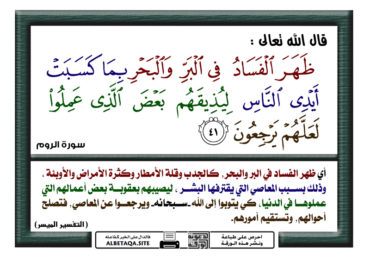 قال الله تعالى :
ظَهَرَ ٱلْفَسَادُ فِي ٱلْبَرِّ وَٱلْبَحْرِ بِمَا كَسَبَتْ
أَيْدِي ٱلنَّاسِ لِيُذِيقَهُم بَعْضَ ٱلَّذِي عَمِلُوا۟
لَعَلَّهُمْ يَرْجِعُونَ ٤١
سورة الروم
أي ظهر الفساد في البر والبحر، كالجدب وقلة الأمطار وكثرة الأمراض والأوبئة ،
وذلك بسبب المعاصي التي يقترفها البشر ، ليصيبهم بعقوبة بعض أعمالهم التي
عملوها في الدنيا، كي يتوبوا إلى الله ـ سبحانه ـ ويرجعوا عن المعاصي، فتصلح
أحوالهم، وتستقيم أمورهم.
( التفسير الميسر )
احرص على طباعة
ونشر هذه الورقة
فالدال على الخير كفاعله
ALBETAQA.SITE